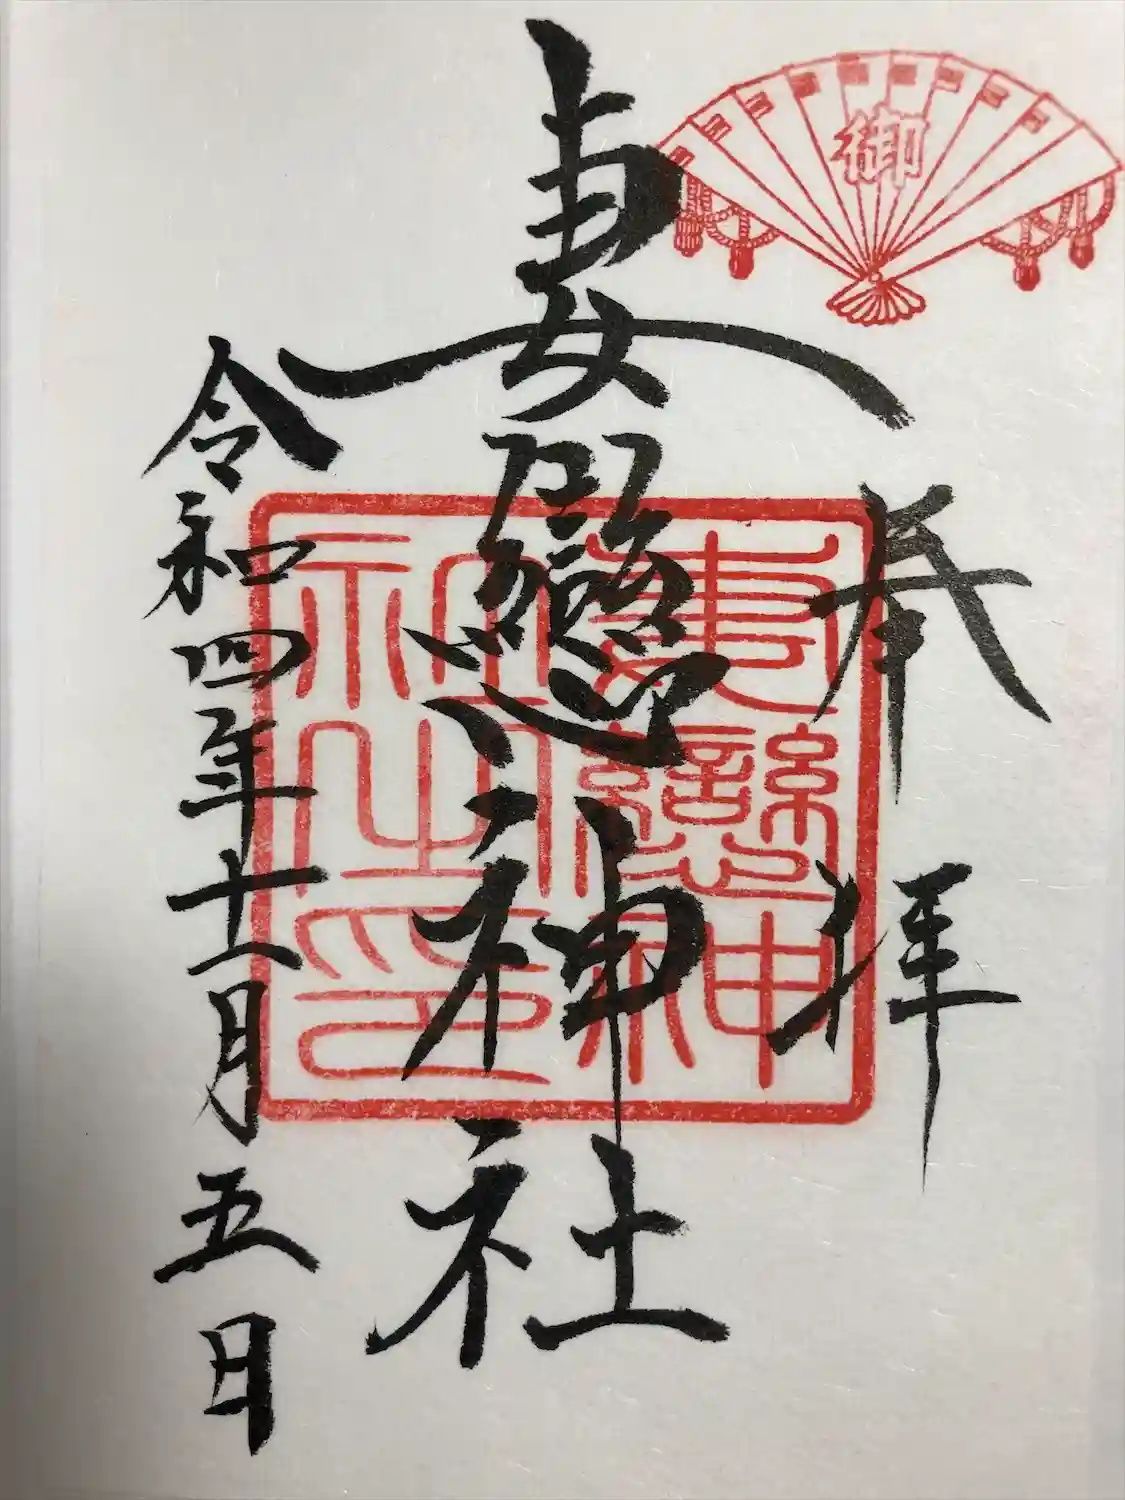 御
奉拝
妻戀神社
妻戀神
社之印
令和四年十一月五日